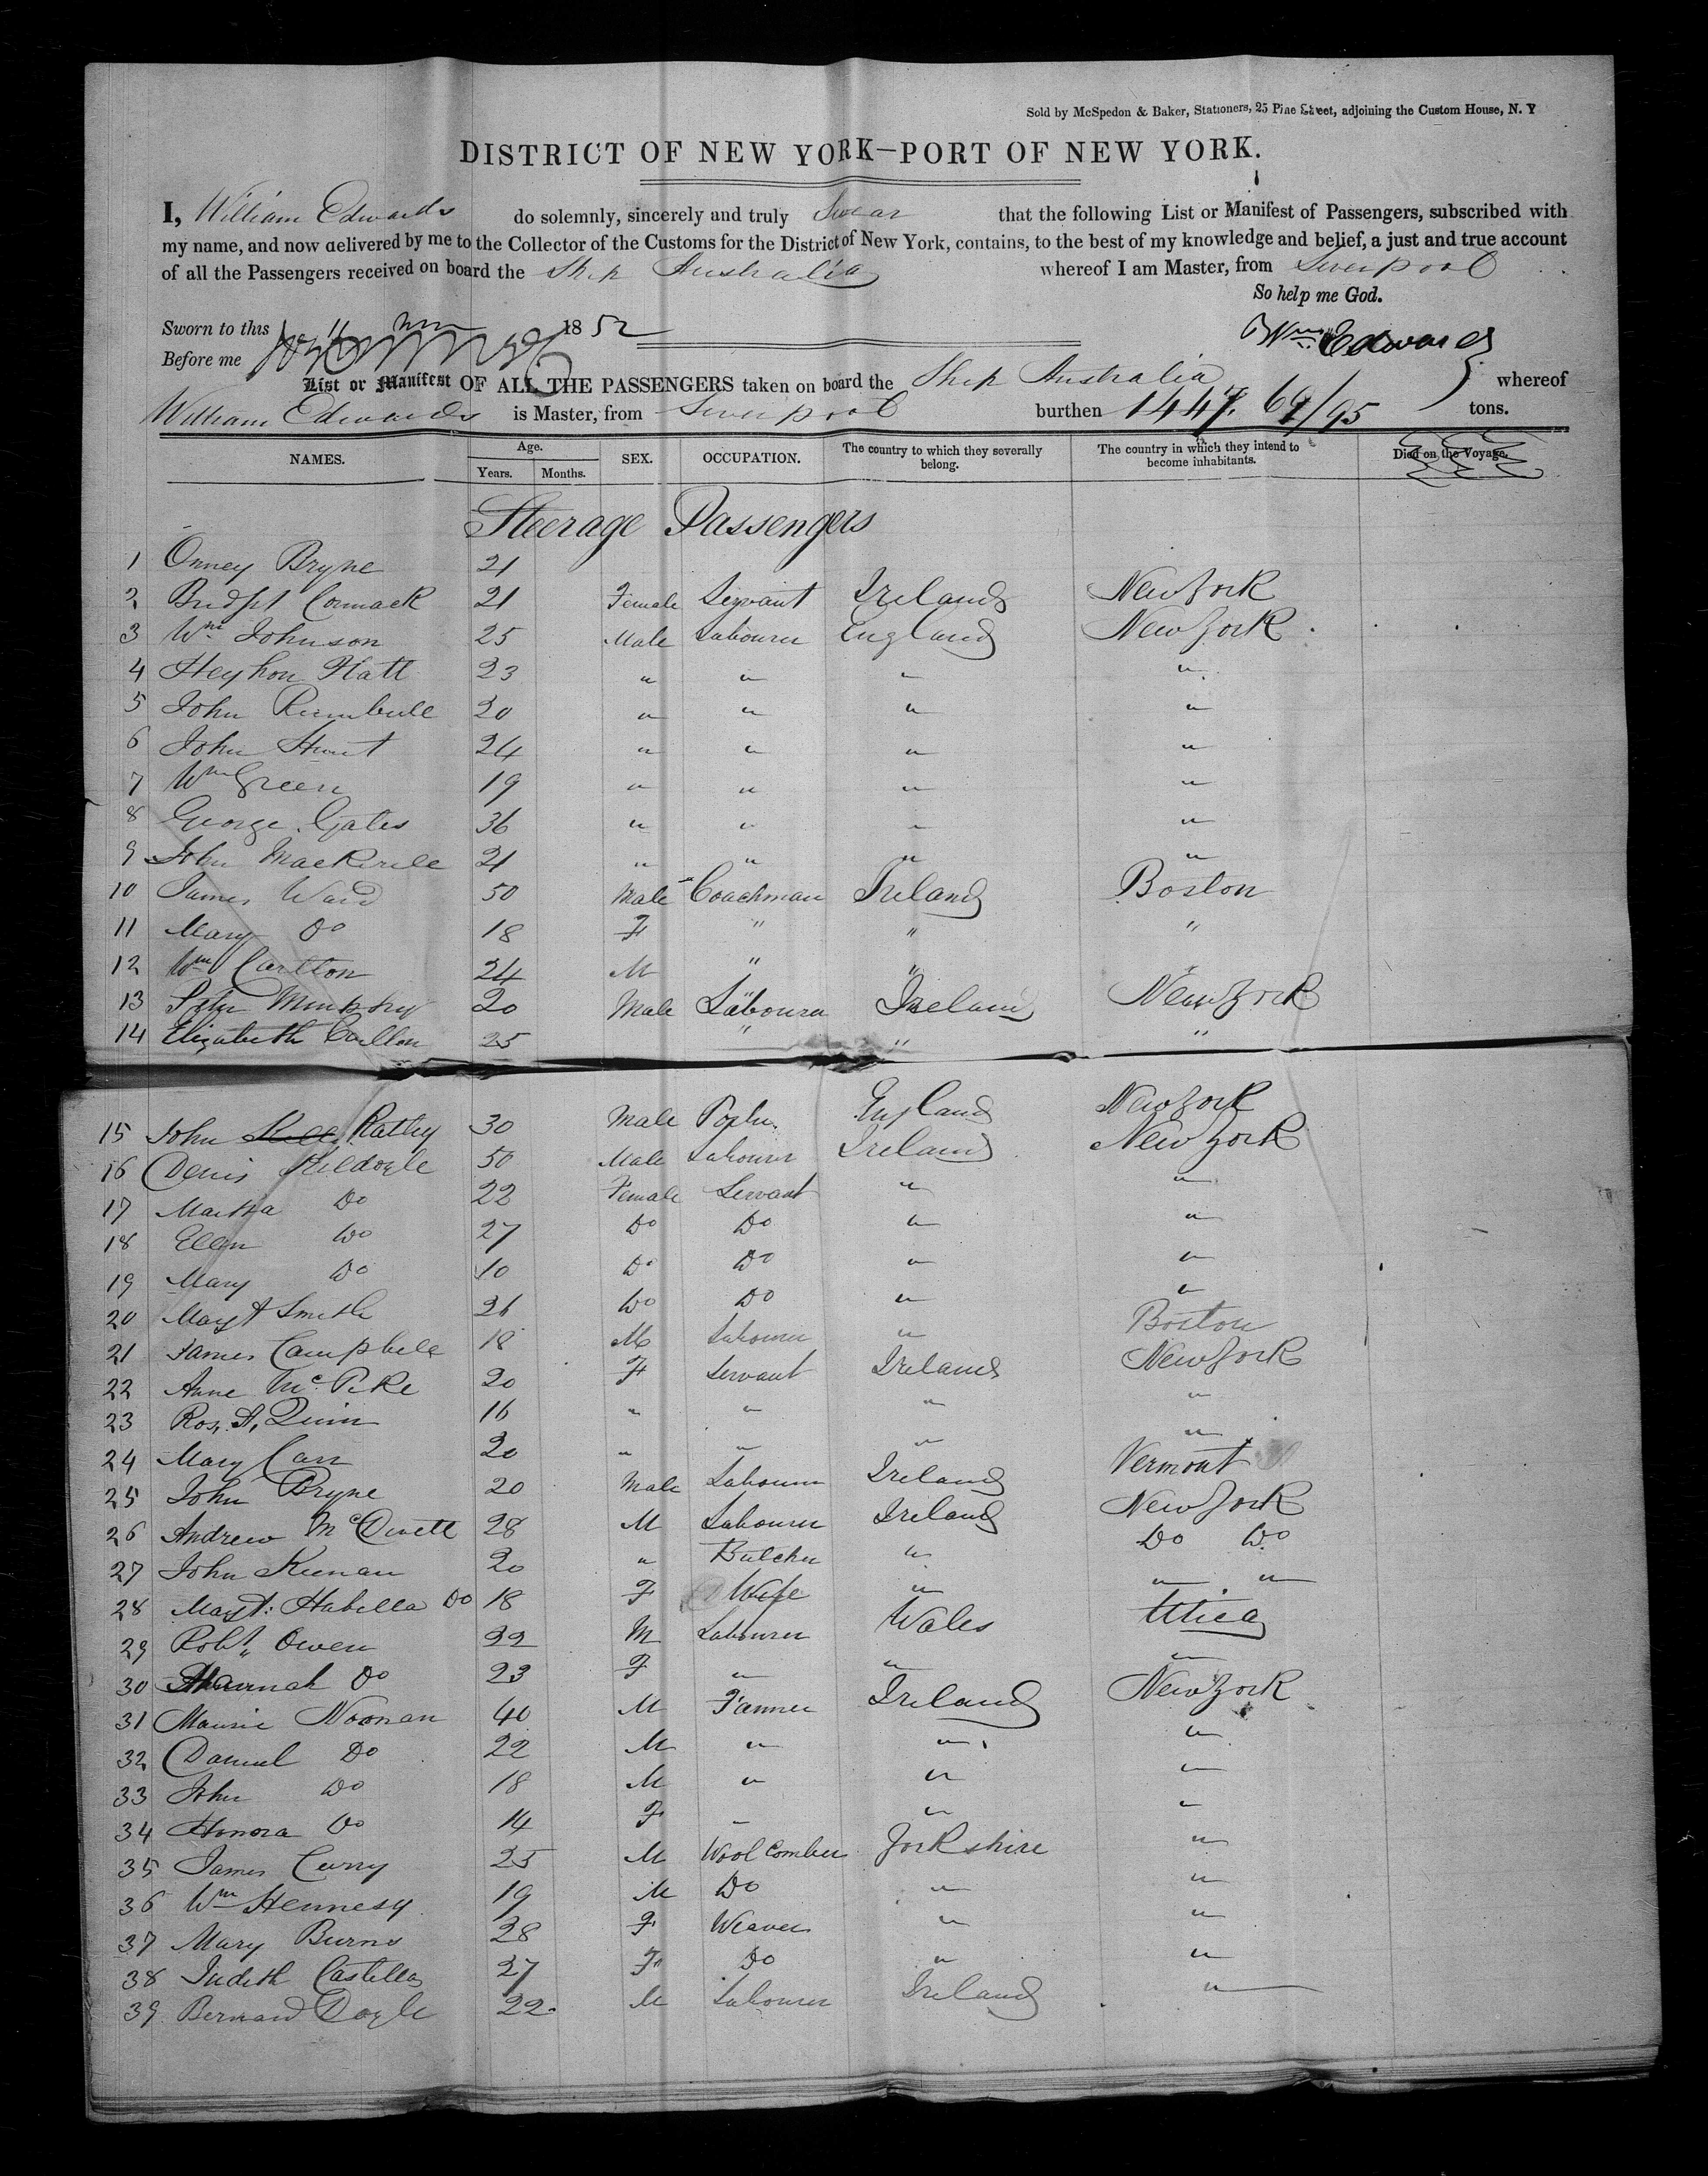 Sold by McSpedon & Baker, Stationers, 25 Pine Street, adjoining the Custom House, N. Y
DISTRICT OF NEW YORK—PORT OF NEW YORK.
I, William Edwards do solemnly, sincerely and truly Swear that the following List or Manifest of Passengers, subscribed with
my name, and now delivered by me to the Collector of the Customs for the District of New York, contains, to the best of my knowledge and belief, a just and true account
of all the Passengers received on board the Ship Australia whereof I am Master, from Liverpool
So help me God.
Sworn to this 1852
Wm Edwards
Before me
List or Manifest OF ALL THE PASSENGERS taken on board the Ship Australia whereof
William Edwards is Master, from Liverpool burthen 1447. 69/95 tons.
NAMES. Age. Years. Months. SEX. OCCUPATION. The country to which they severally belong. The country in which they intend to become inhabitants. Died on the Voyage.
Steerage Passengers
1 Onney Bryne 21
2 Bridgt Cormack 21 Female Servant Ireland New York
3 Wm Johnson 25 Male Labourer England New York
4 Platt 23 " " " "
5 John Rumbull 20 " " " "
6 John Hunt 24 " " " "
7 Wm Green 19 " " " "
8 George Gates 36 " " " "
9 John 21 " " " "
10 James Ward 50 Male Coachman Ireland Boston
11 Mary Do 18 F " " "
12 Wm Carlton 24 M " " "
13 Murphy 20 Male Labourer Ireland New York
14 Elizabeth Carlton 25 " " "
15 John Rathy 30 Male England New York
16 Denis Kildoyle 50 Male Labourer Ireland New York
17 Martha Do 22 Female Servant " "
18 Ellen Do 27 Do Do " "
19 Mary Do 10 Do Do " "
20 Mary A Smith 26 Do Do " "
21 James Campbell 18 M Labourer " Boston
22 Anne McPike 20 F Servant Ireland New York
23 Ros. A. Quinn 16 " " " "
24 Mary Carr 20 " " " "
25 John Bryne 20 Male Labourer Ireland Vermont
26 Andrew 28 M Labourer Ireland New York
27 John Keenan 20 " Butcher " Do Do
28 Margt. Do 18 F Wife " " "
29 Robt Owen 22 M Labourer Wales Utica
30 Hannah Do 23 F " " "
31 Maurice Noonan 40 M Farmer Ireland New York
32 Daniel Do 22 M " " "
33 John Do 18 M " " "
34 Honora Do 14 F " " "
35 James Curry 25 M Wool Comber Yorkshire "
36 Wm Hennesy 19 M Do " "
37 Mary Burns 28 F Weaver " "
38 Judith Castello 27 F Do " "
39 Bernard Doyle 22 M Labourer Ireland "